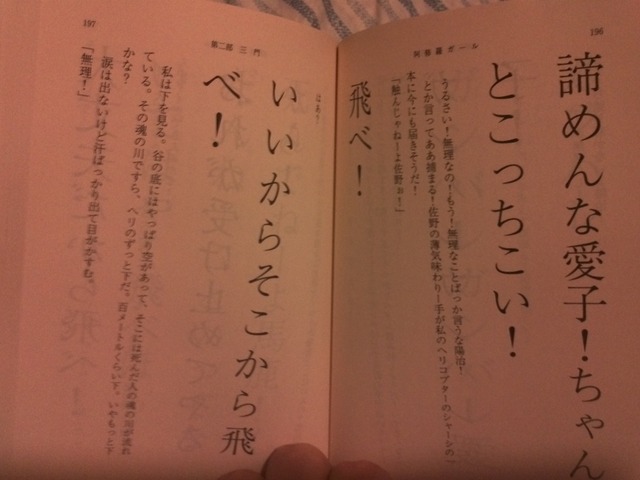 196
阿修羅ガール
諦めんな愛子！ちゃん
とこっちこい！
うるさい！無理なの！もう！無理なことばっか言うな陽治！
とか言ってああ捕まる！佐野の薄気味わりー手が私のヘリコプターのシャーシの一
本に今にも届きそうだ！
「触んじゃねーよ佐野ぉ！」
飛べ！
197
第二部 三門
はあ？
いいからそこから飛
べ！
私は下を見る。谷の底にはやっぱり空があって、そこには死んだ人の魂の川が流れ
ている。その魂の川ですら、ヘリのずっと下だ。百メートルくらい下。いやもっと下
かな？
涙は出ないけど汗ばっかり出て目がかすむ。
「無理！」